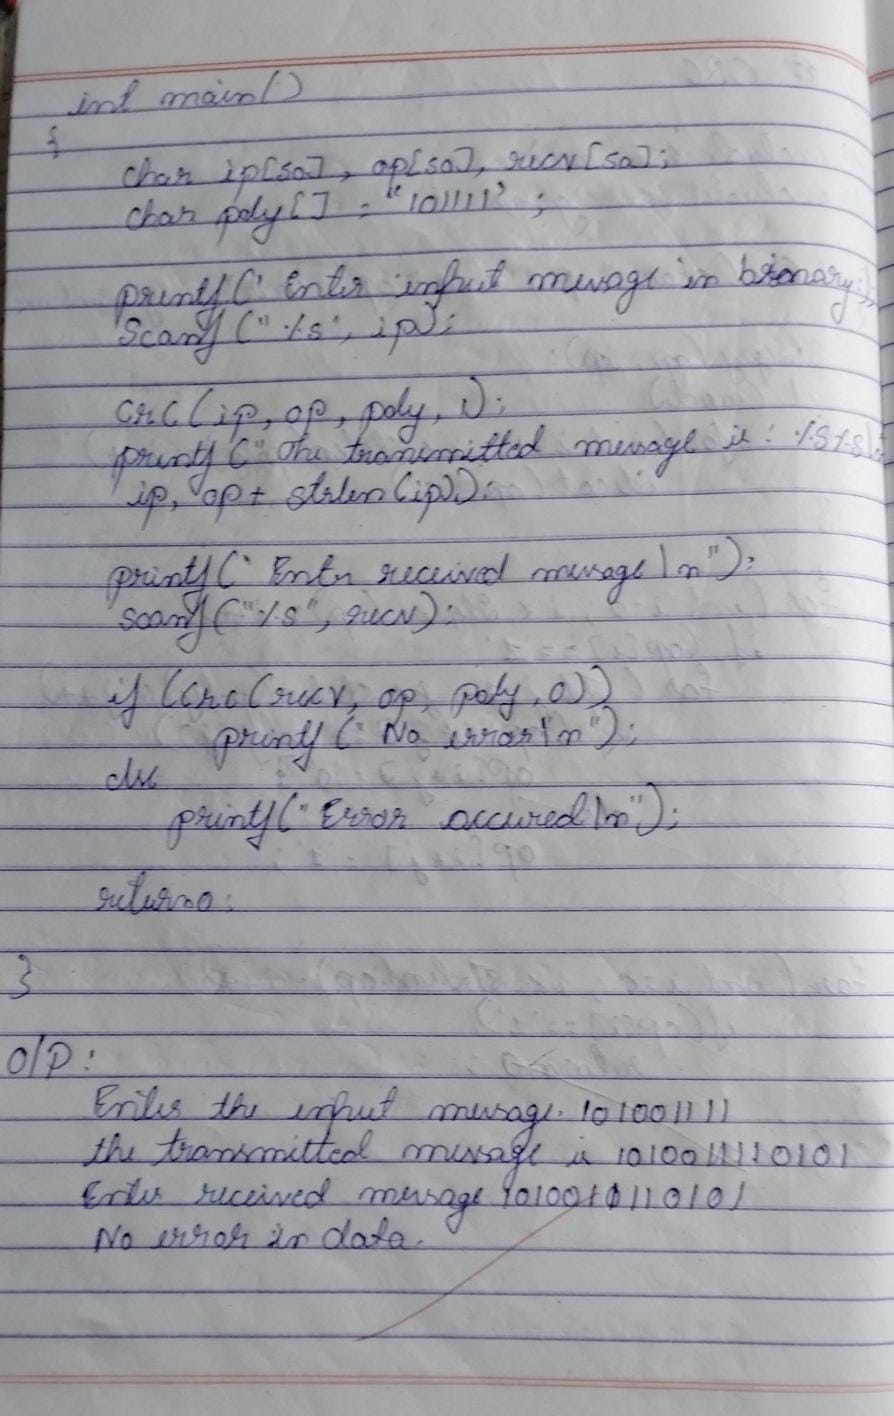 int main()
{
char ip[50], op[50], recv[50];
char poly[] = "101111";
printf(" Enter input message in binary
Scanf("%s", ip);
crc(ip, op, poly, 1);
printf(" The transmitted message is: %s%s\
ip, op + strlen(ip));
printf(" Enter received message \n");
scanf("%s", recv);
if (crc(recv, op, poly, 0))
printf(" No error\n");
else
printf(" Error occured\n");
return 0;
}
O/P:
Enter the input message. 101001111
the transmitted message is 1010011110101
Enter received message
No error in data.